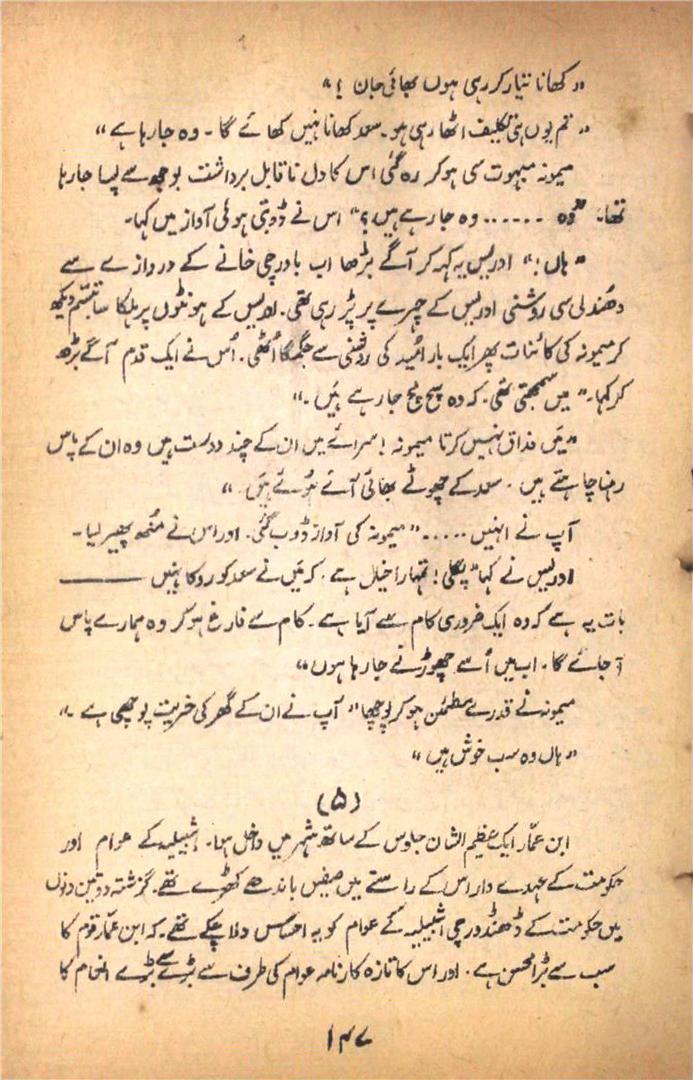 „ کھانا تیار کر رہی ہوں بھائی جان ! “
„ تم یوں ہی تکلیف اٹھا رہی ہو۔ سعد کھانا نہیں کھائے گا ۔ وہ جا رہا ہے “
میمونہ مبہوت سی ہو کر رہ گئی اس کا دل ناقابل برداشت بوجھ سے پسا جا رہا
تھا۔ „ وہ ...... وہ جا رہے ہیں؟“ اس نے ڈوبتی ہوئی آواز میں کہا۔
„ ہاں ! “ ادریس یہ کہہ کر آگے بڑھا اب باورچی خانے کے دروازے سے
دھندلی سی روشنی ادریس کے چہرے پر پڑ رہی تھی۔ ادریس کے ہونٹوں پر ہلکا سا تبسم دیکھ
کر میمونہ کی کائنات پھر ایک بار اُمید کی روشنی سے جگمگا اُٹھی۔ اُس نے ایک قدم آگے بڑھ
کر کہا۔ „ میں سمجھتی تھی۔ کہ وہ سچ مچ جا رہے ہیں ۔“
„ میں مذاق نہیں کرتا میمونہ ! سرائے میں ان کے چند دوست ہیں وہ ان کے پاس
رہنا چاہتے ہیں ۔ سعد کے چھوٹے بھائی آئے ہوئے ہیں ۔ “
آپ نے انہیں ..... “ میمونہ کی آواز ڈوب گئی۔ اور اس نے منھ پھیر لیا ۔
ادریس نے کہا „ پگلی ! تمہارا خیال ہے ۔ کہ میں نے سعد کو روکا نہیں ———
بات یہ ہے کہ وہ ایک ضروری کام سے آیا ہے ۔ کام سے فارغ ہو کر وہ ہمارے پاس
آ جائے گا ۔ اب میں اُسے چھوڑنے جا رہا ہوں “
میمونہ نے قدرے مطمئن ہو کر پوچھا „ آپ نے ان کے گھر کی خیریت پوچھی ہے ۔ “
„ ہاں وہ سب خوش ہیں “
(۵)
ابن عمّار ایک عظیم الشان جلوس کے ساتھ شہر میں داخل ہوا۔ اشبیلیہ کے عوام اور
حکومت کے عہدے دار اس کے راستے میں صفیں باندھے کھڑے تھے۔ گزشتہ دو تین دنوں
میں حکومت کے ڈھنڈورچی اشبیلیہ کے عوام کو یہ احساس دلا چکے تھے۔ کہ ابن عمّار قوم کا
سب سے بڑا محسن ہے ۔ اور اس کا تازہ کارنامہ عوام کی طرف سے بڑے سے بڑے انعام کا
۱۴۷